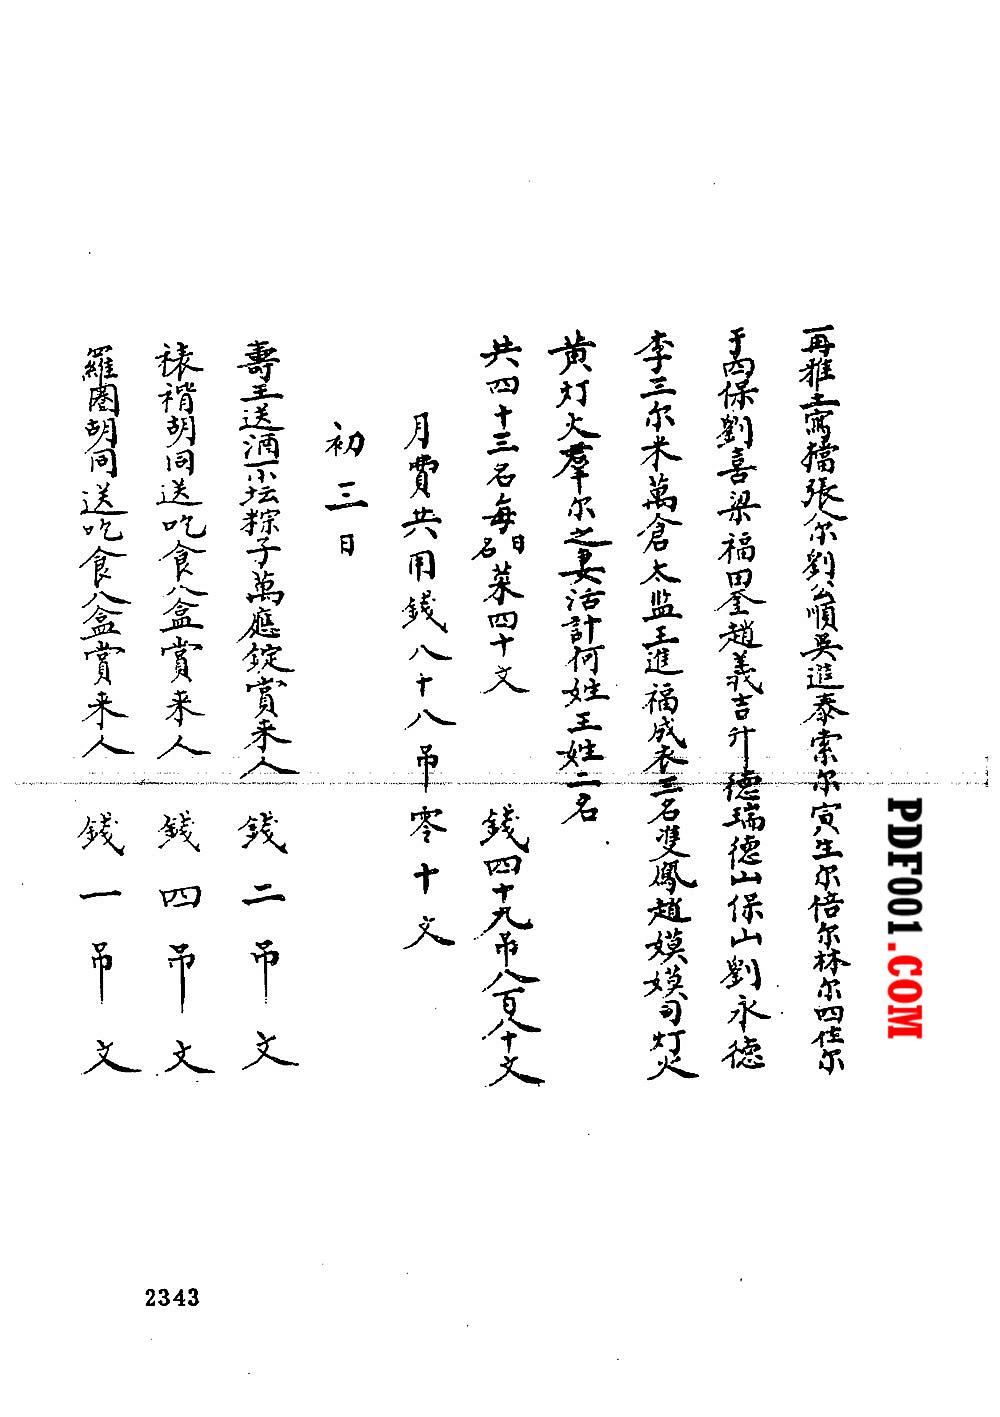 再雅立寫擋張尔劉公順吳進泰索尔寅生尔倍尔林尔四住尔
于四保劉喜梁福田奎趙義吉升德瑞德山保山劉永德
李三尔米萬倉太监王進福成衣三名雙鳳趙嫫嫫司灯火
黄灯火羣尔之妻活計何姓王姓二名
共四十三名每名日菜四十文 錢四十九吊八百八十文
月費共用錢八十八吊零十文
初三日
壽王送酒一坛粽子萬應錠賞来人 錢二吊文
裱褙胡同送吃食八盒賞来人 錢四吊文
羅圈胡同送吃食八盒賞来人 錢一吊文
PDF001.COM
2343